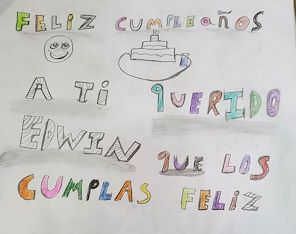 FELIZ CUMPLEAÑOS
A Ti QUERIDO
EDWIN
QUE LOS
CUMPLAS FELIZ